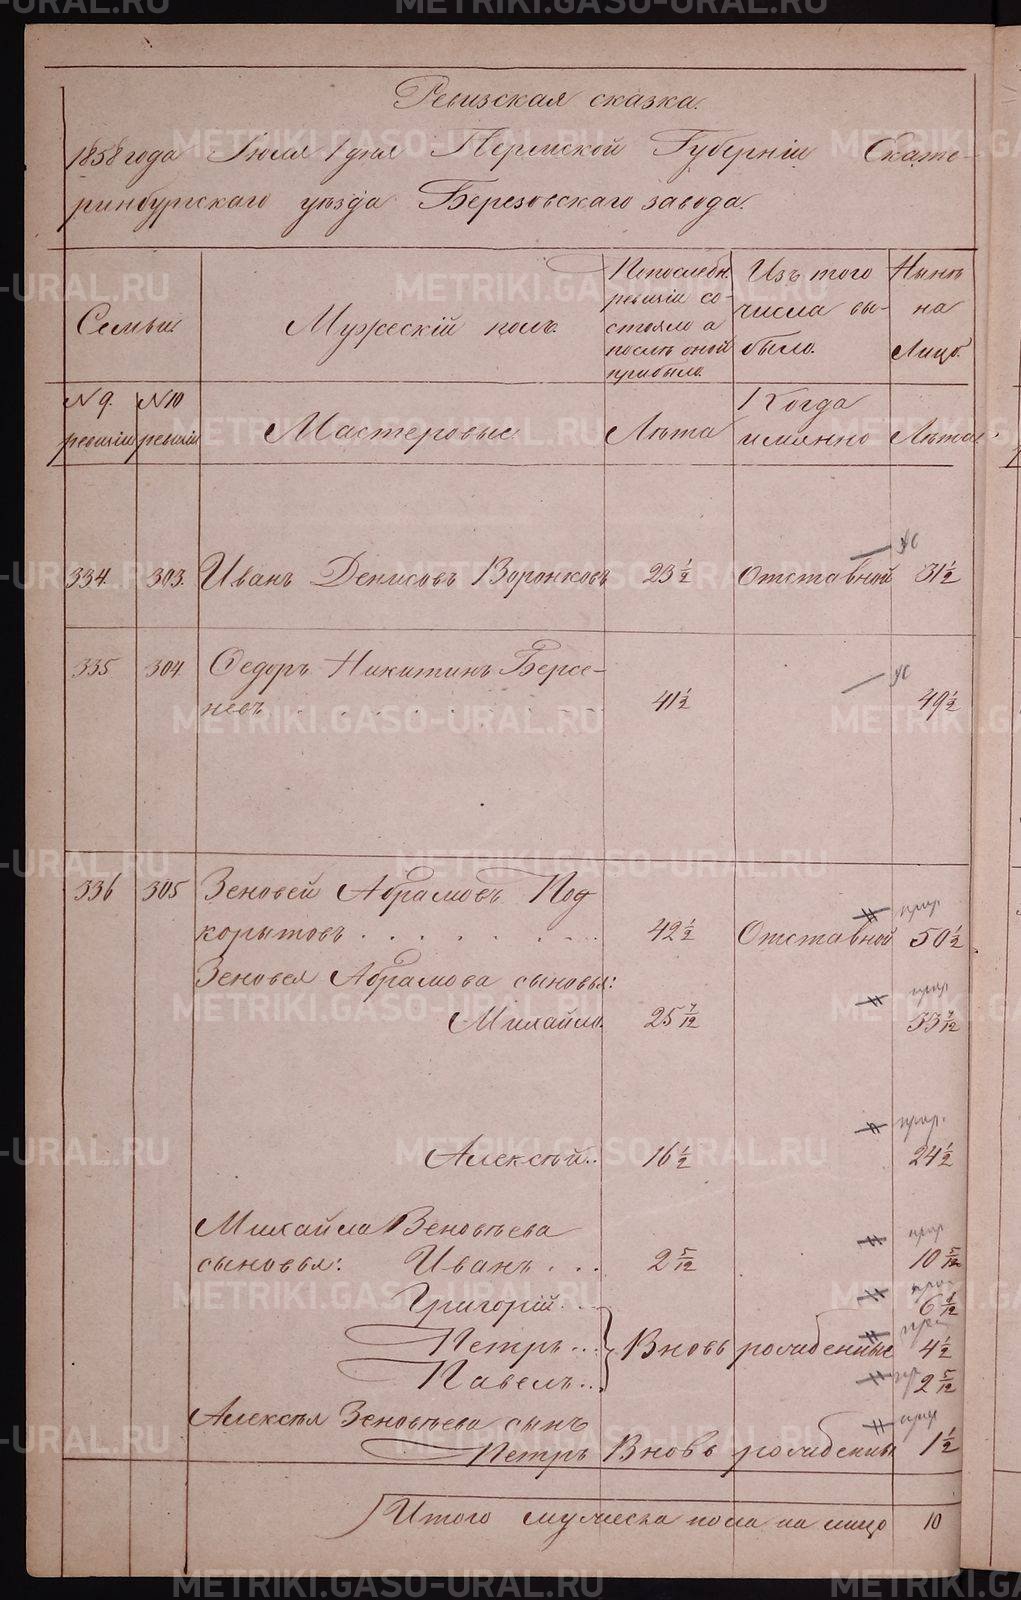 Ревизская сказка.
1858 года Іюля 1 дня Пермской Губерніи Екате-
ринбургскаго уѣзда Березовскаго завода.
Семьи
Мужескій полъ.
По послѣдн.
ревизіи со-
стояло а
послѣ оной
прибыло.
Изъ того
числа вы-
было.
Нынѣ
на
Лицо.
N 9.
ревизіи
N 10
ревизіи
Мастеровые.
Лѣта
Когда
имянно
Лѣта.
334. 303. Иванъ Денисовъ Воронковъ 23 1/2 Отставной 31 1/2
335 304. Ѳедоръ Никитинъ Берсе-
невъ . . . . . . . . 41 1/2 49 1/2
336 305 Зеновей Абрамовъ Под
корытовъ . . . . . . . 42 1/2 Отставной 50 1/2
Зеновея Абрамова сыновья:
Михайло. 25 7/12 33 7/12
Алексѣй.. 16 1/2 24 1/2
Михайла Зеновѣева
сыновья: Иванъ . . . 2 5/12 10 5/12
Григорій . . 6 1/12
Петръ . . . Вновь рожденные 4 1/2
Павелъ . . 2 5/12
Алексѣя Зеновѣева сынъ
Петръ Вновь рожденный 1 1/2
Итого мужеска пола на лицо 10
METRIKI.GASO-URAL.RU